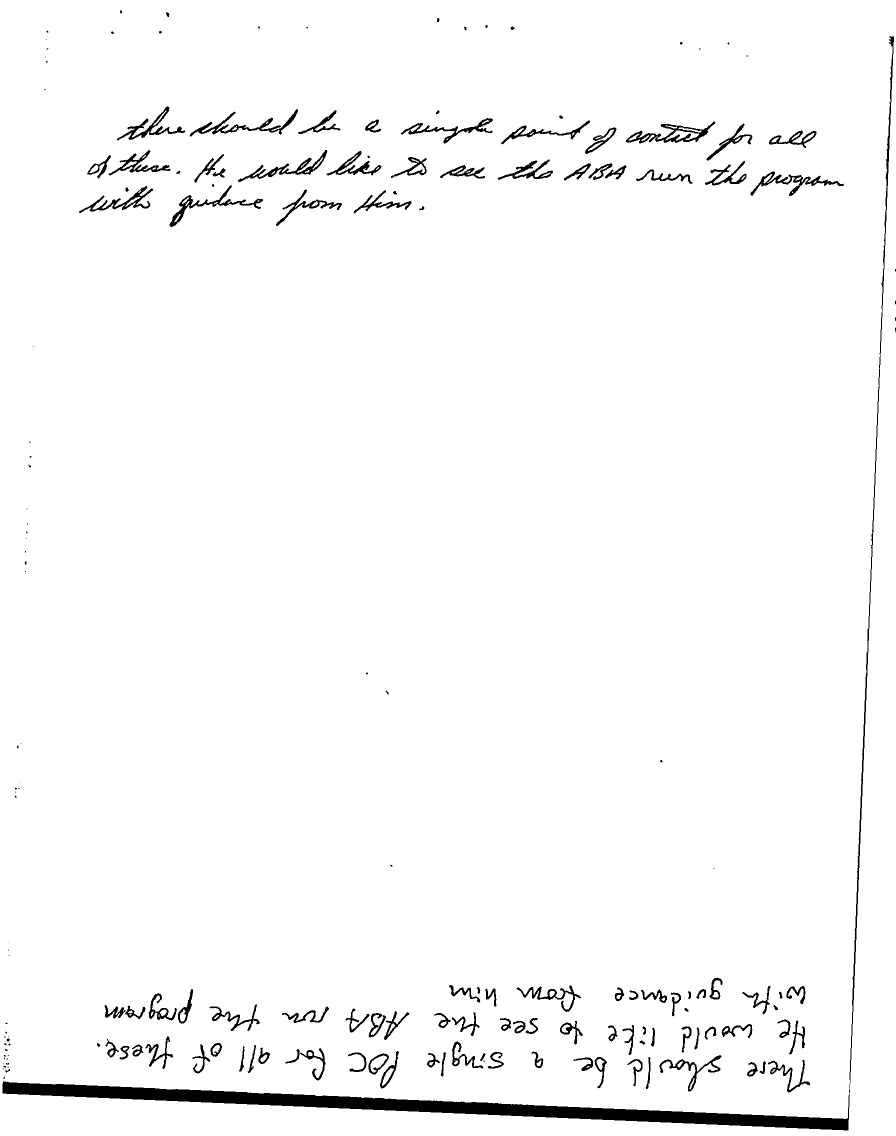 there should be a single point of contact for all
of these. He would like to see the ABA run the program
with guidance from Him.
There should be a single POC for all of these.
He would like to see the ABA run the program
with guidance from him